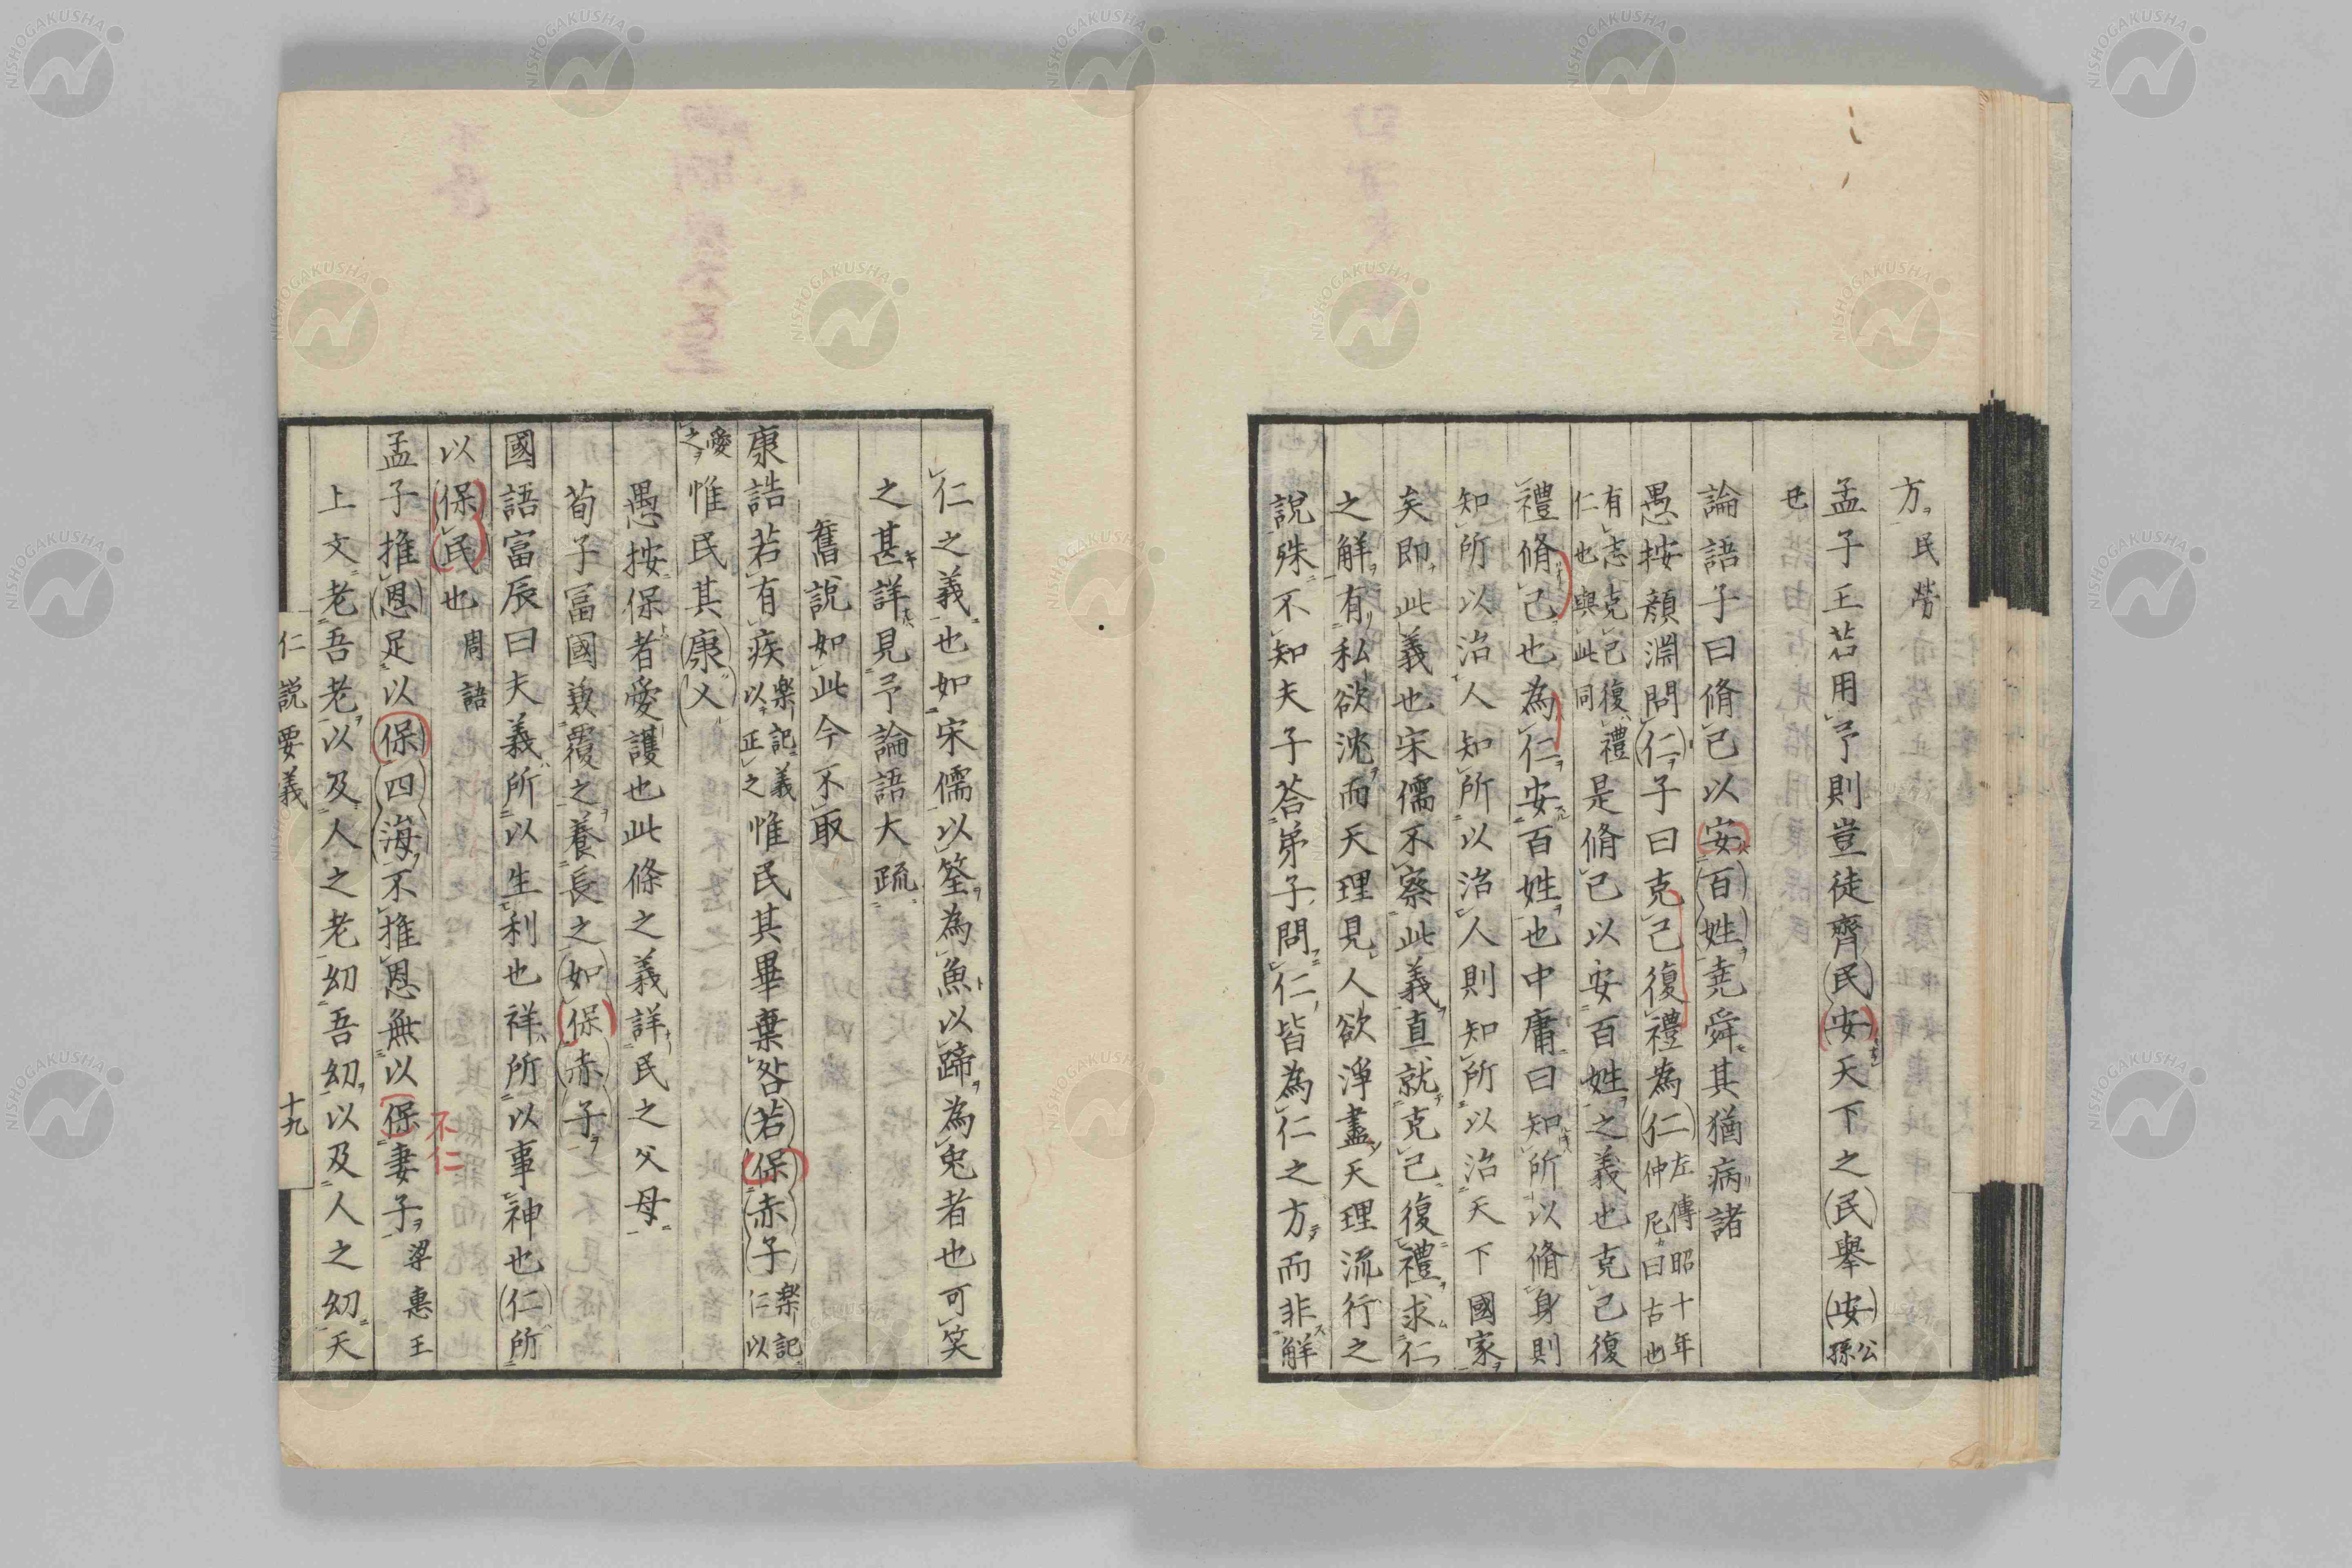 方民勞
孟子王若用予則豈徒齊民安天下之民舉安公孫
丑
論語子曰脩己以安百姓堯舜其猶病諸
愚按顏淵問仁子曰克己復禮為仁左傳昭十年仲尼曰古也
有志克己復禮仁也與此同是脩己以安百姓之義也克己復
禮脩己也為仁安百姓也中庸曰知所以脩身則
知所以治人知所以治人則知所以治天下國家
矣即此義也宋儒不察此義直就克己復禮求仁
之解有私欲洮而天理見人欲淨盡天理流行之
說殊不知夫子荅弟子問仁皆為仁之方而非解
仁之義也如宋儒以筌為魚以蹄為兔者也可笑
之甚詳見予論語大疏
舊說如此今不取
康誥若有疾樂記義以正之惟民其畢棄咎若保赤子樂記仁以
愛之惟民其康乂
愚按保者愛護也此條之義詳民之父母
荀子富國兼覆之養長之如保赤子
國語富辰曰夫義所以生利也祥所以事神也仁所
以保民也周語
孟子推恩足以保四海不推恩無以保妻子梁惠王
不仁
上文老吾老以及人之老幼吾幼以及人之幼天
仁說要義 十九
NISHOGAKUSHA